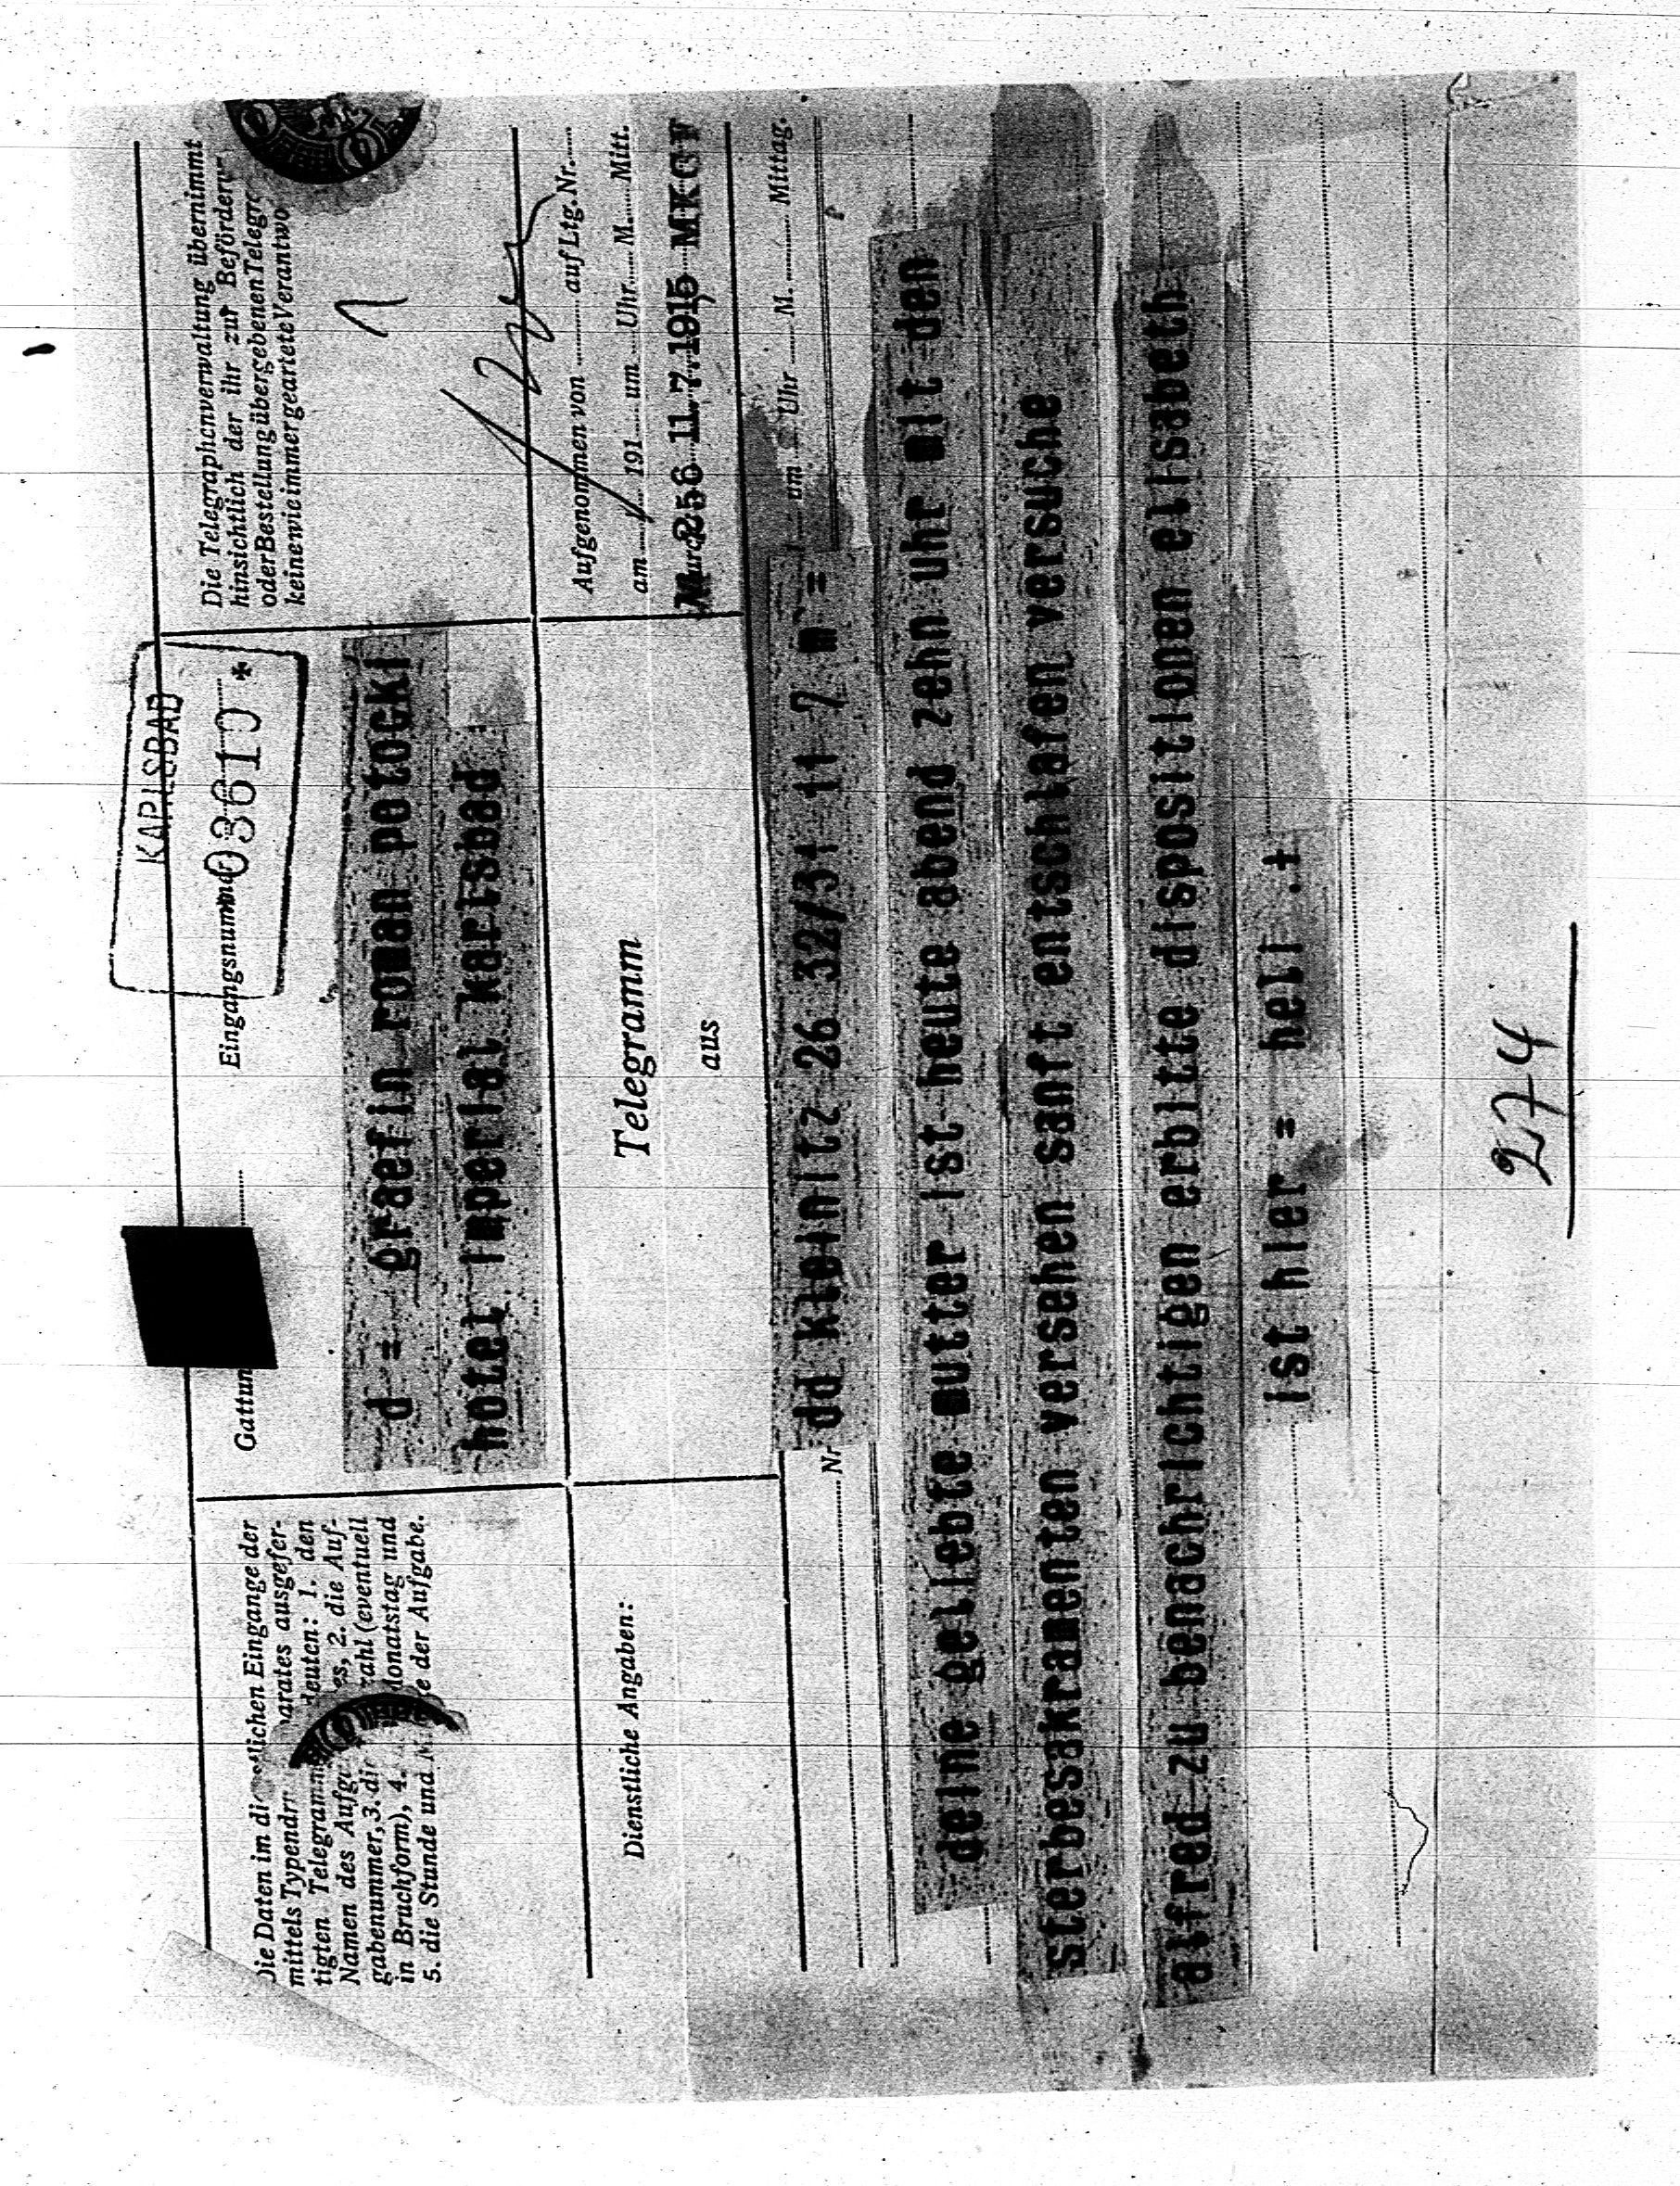 KARLSBAD
Die Daten im di lichen Eingange der
mittels Typendr arates ausgefer-
tigten Telegramm deuten: 1. den
Namen des Aufg es, 2. die Auf-
gabenummer, 3. die zahl (eventuell
in Bruchform), 4. Monatstag und
5. die Stunde und M e der Aufgabe.
Gattun
Eingangsnumme 03610 *
d = graefin roman potocki
hotel imperial karlsbad
Die Telegraphenverwaltung übernimmt
hinsichtlich der ihr zur Beförderu
oder Bestellung übergebenen Telegr
keine wie immer geartete Verantwo
1
Dienstliche Angaben:
Telegramm
aus
Aufgenommen von auf Ltg. Nr.
am 191 um Uhr M. Mitt.
256 11.7.1915 MKGV
Nr dd kleinitz 26 32/31 11 7 m = am Uhr M. Mittag.
deine geliebte mutter ist heute abend zehn uhr mit den
sterbesakramenten versehen sanft entschlafen versuche
alfred zu benachrichtigen erbitte dispositionen elisabeth
ist hier = heli .+
274